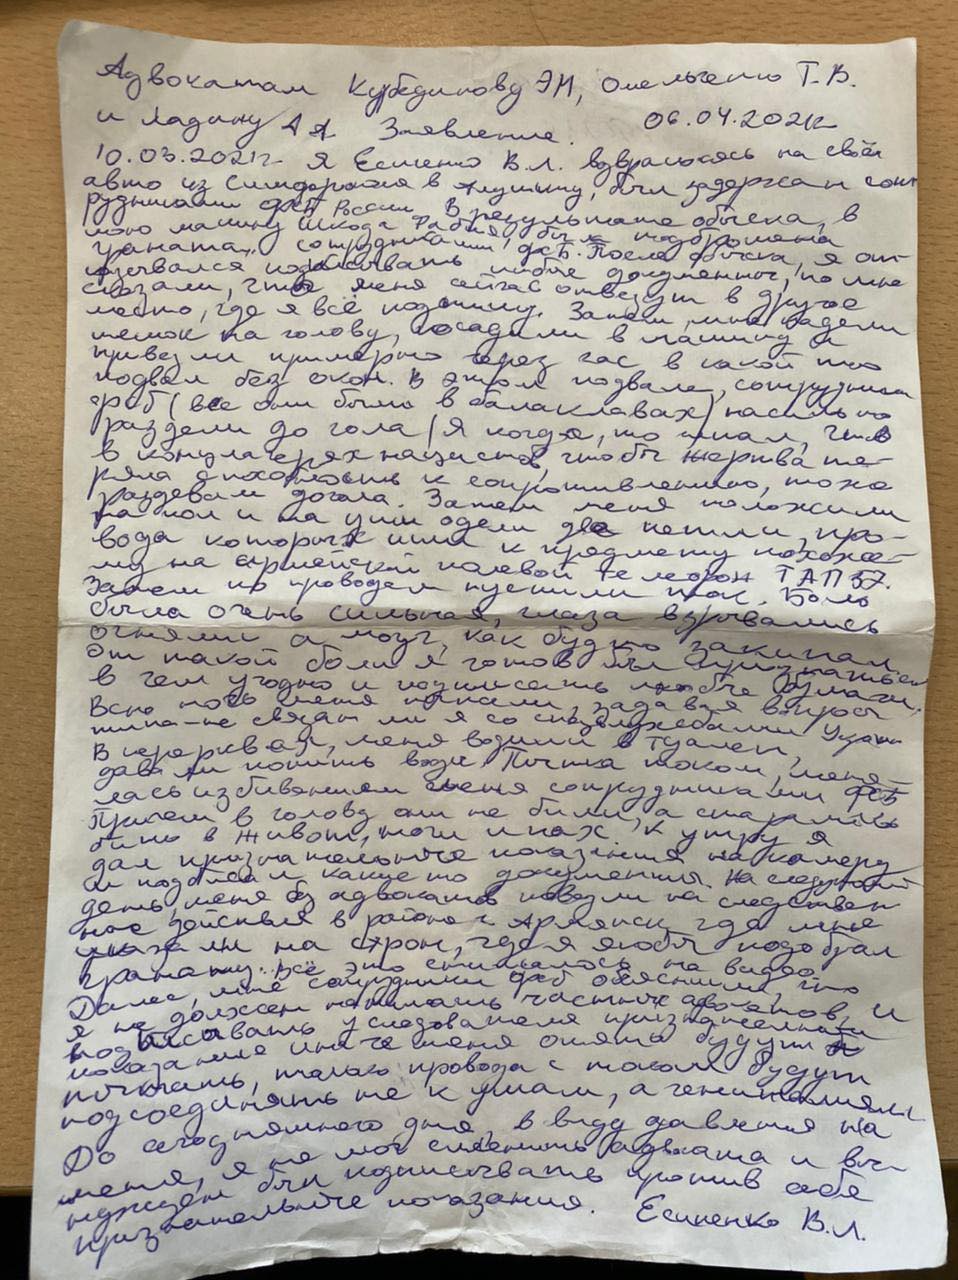 Адвокатам Кубединову ЭМ, Омельченко Т.В.
и Ладину АЯ Заявление. 06.04.2021г
10.03.2021г. я Есипенко В.Л. возвращаясь на своём
авто из Симферополя в Алушту, был задержан сот
рудниками ФСБ России. В результате обыска, в
мою машину Шкода Фабия, была подброшена
граната, сотрудниками ФСБ. После обыска, я от
казывался подписывать любые документы, но мне
сказали, что меня сейчас отвезут в другое
место, где я всё подпишу. Затем, мне надели
мешок на голову, посадили в машину и
привезли примерно через час в какой то
подвал без окон. В этом подвале, сотрудники
ФСБ (все они были в балаклавах) насильно
раздели до гола (я когда, то читал, что
в концлагерях нацистов, чтобы жертва те-
ряла способность к сопротивлению, тоже
раздевали догола. Затем меня положили
на пол и на уши одели две петли, про-
вода которых шли к предмету похоже-
му на армейский полевой телефон ТАП 57.
Затем по проводам пустили ток. Боль
была очень сильная, глаза взрывались
огнями а мозг, как будто закипал
От такой боли я готов был признаться
в чем угодно и подписать любые бумаги.
Всю ночь меня пытали, задавая вопросы
типа-не связан ли я со спецслужбами Украи
В перерывах, меня водили в туалет,
давали попить воды. Пытка током, меня-
лась избиванием меня сотрудниками ФСБ
Причем в голову они не били, а старались
били в живот, ноги и пах. К утру я
дал признательные показания на камеру
и подписал какие то документы. На следующий
день, меня без адвокатов повезли на следствен
ное действия в район г. Армянск, где мне
указали на схрон, где я якобы подобрал
гранату. Всё это снималось на видео
Далее, мне сотрудники ФСБ объяснили, что
я не должен нанимать частных адвокатов, и
подписывать у следователя признательные
показание иначе меня опять будут
пытать, только провода с током будут
подсоединять не к ушам, а гениталиям
До сегодняшнего дня, в виду давления на
меня, я не мог сменить адвоката и вы-
нужден был подписывать против себя
признательные показания. Есипенко В.Л.